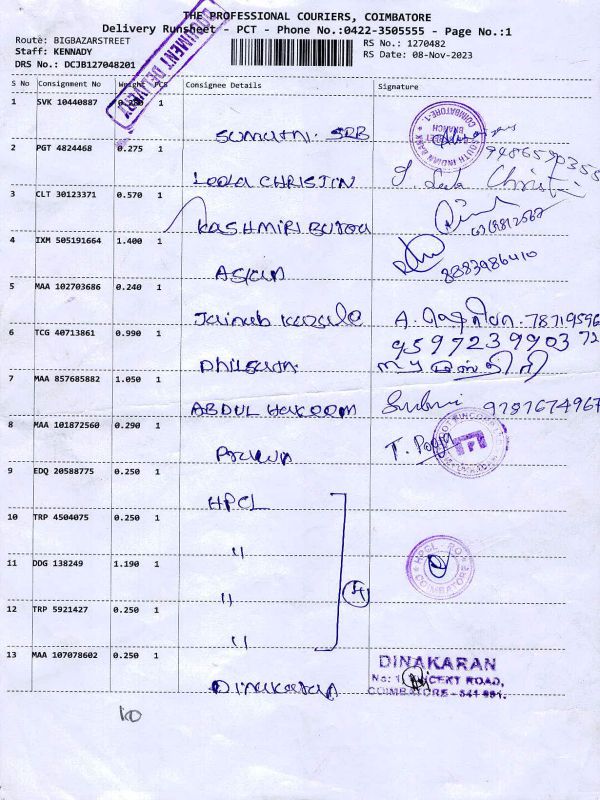 THE PROFESSIONAL COURIERS, COIMBATORE
Delivery Runsheet - PCT - Phone No.:0422-3505555 - Page No.:1
Route: BIGBAZARSTREET
Staff: KENNADY
DRS No.: DCJB127048201
RS No.: 1270482
RS Date: 08-Nov-2023
DOCUMENT DELIVERY
S No Consignment No Weight PCS Consignee Details Signature
1 SVK 10440887 1
SOUTH INDIAN BANK COIMBATORE-1 BRANCH
2 PGT 4824468 0.275 1
Leela CHRISTIN
3 CLT 30123371 0.570 1
KASHMIRI
4 IXM 505191664 1.400 1
8883986410
5 MAA 102703686 0.240 1
Jainub A. 78719596
6 TCG 40713861 0.990 1
9597239903 72
7 MAA 857685882 1.050 1
ABDUL HAKEEM 9787674967
8 MAA 101872560 0.290 1
T. Pooja
9 EDQ 20588775 0.250 1
HPCL
10 TRP 4504075 0.250 1
"
11 DDG 138249 1.190 1
HPCL RO COIMBATORE
"
12 TRP 5921427 0.250 1
"
13 MAA 107078602 0.250 1
DINAKARAN
Dinakaran
COIMBATORE - 641 001.
10